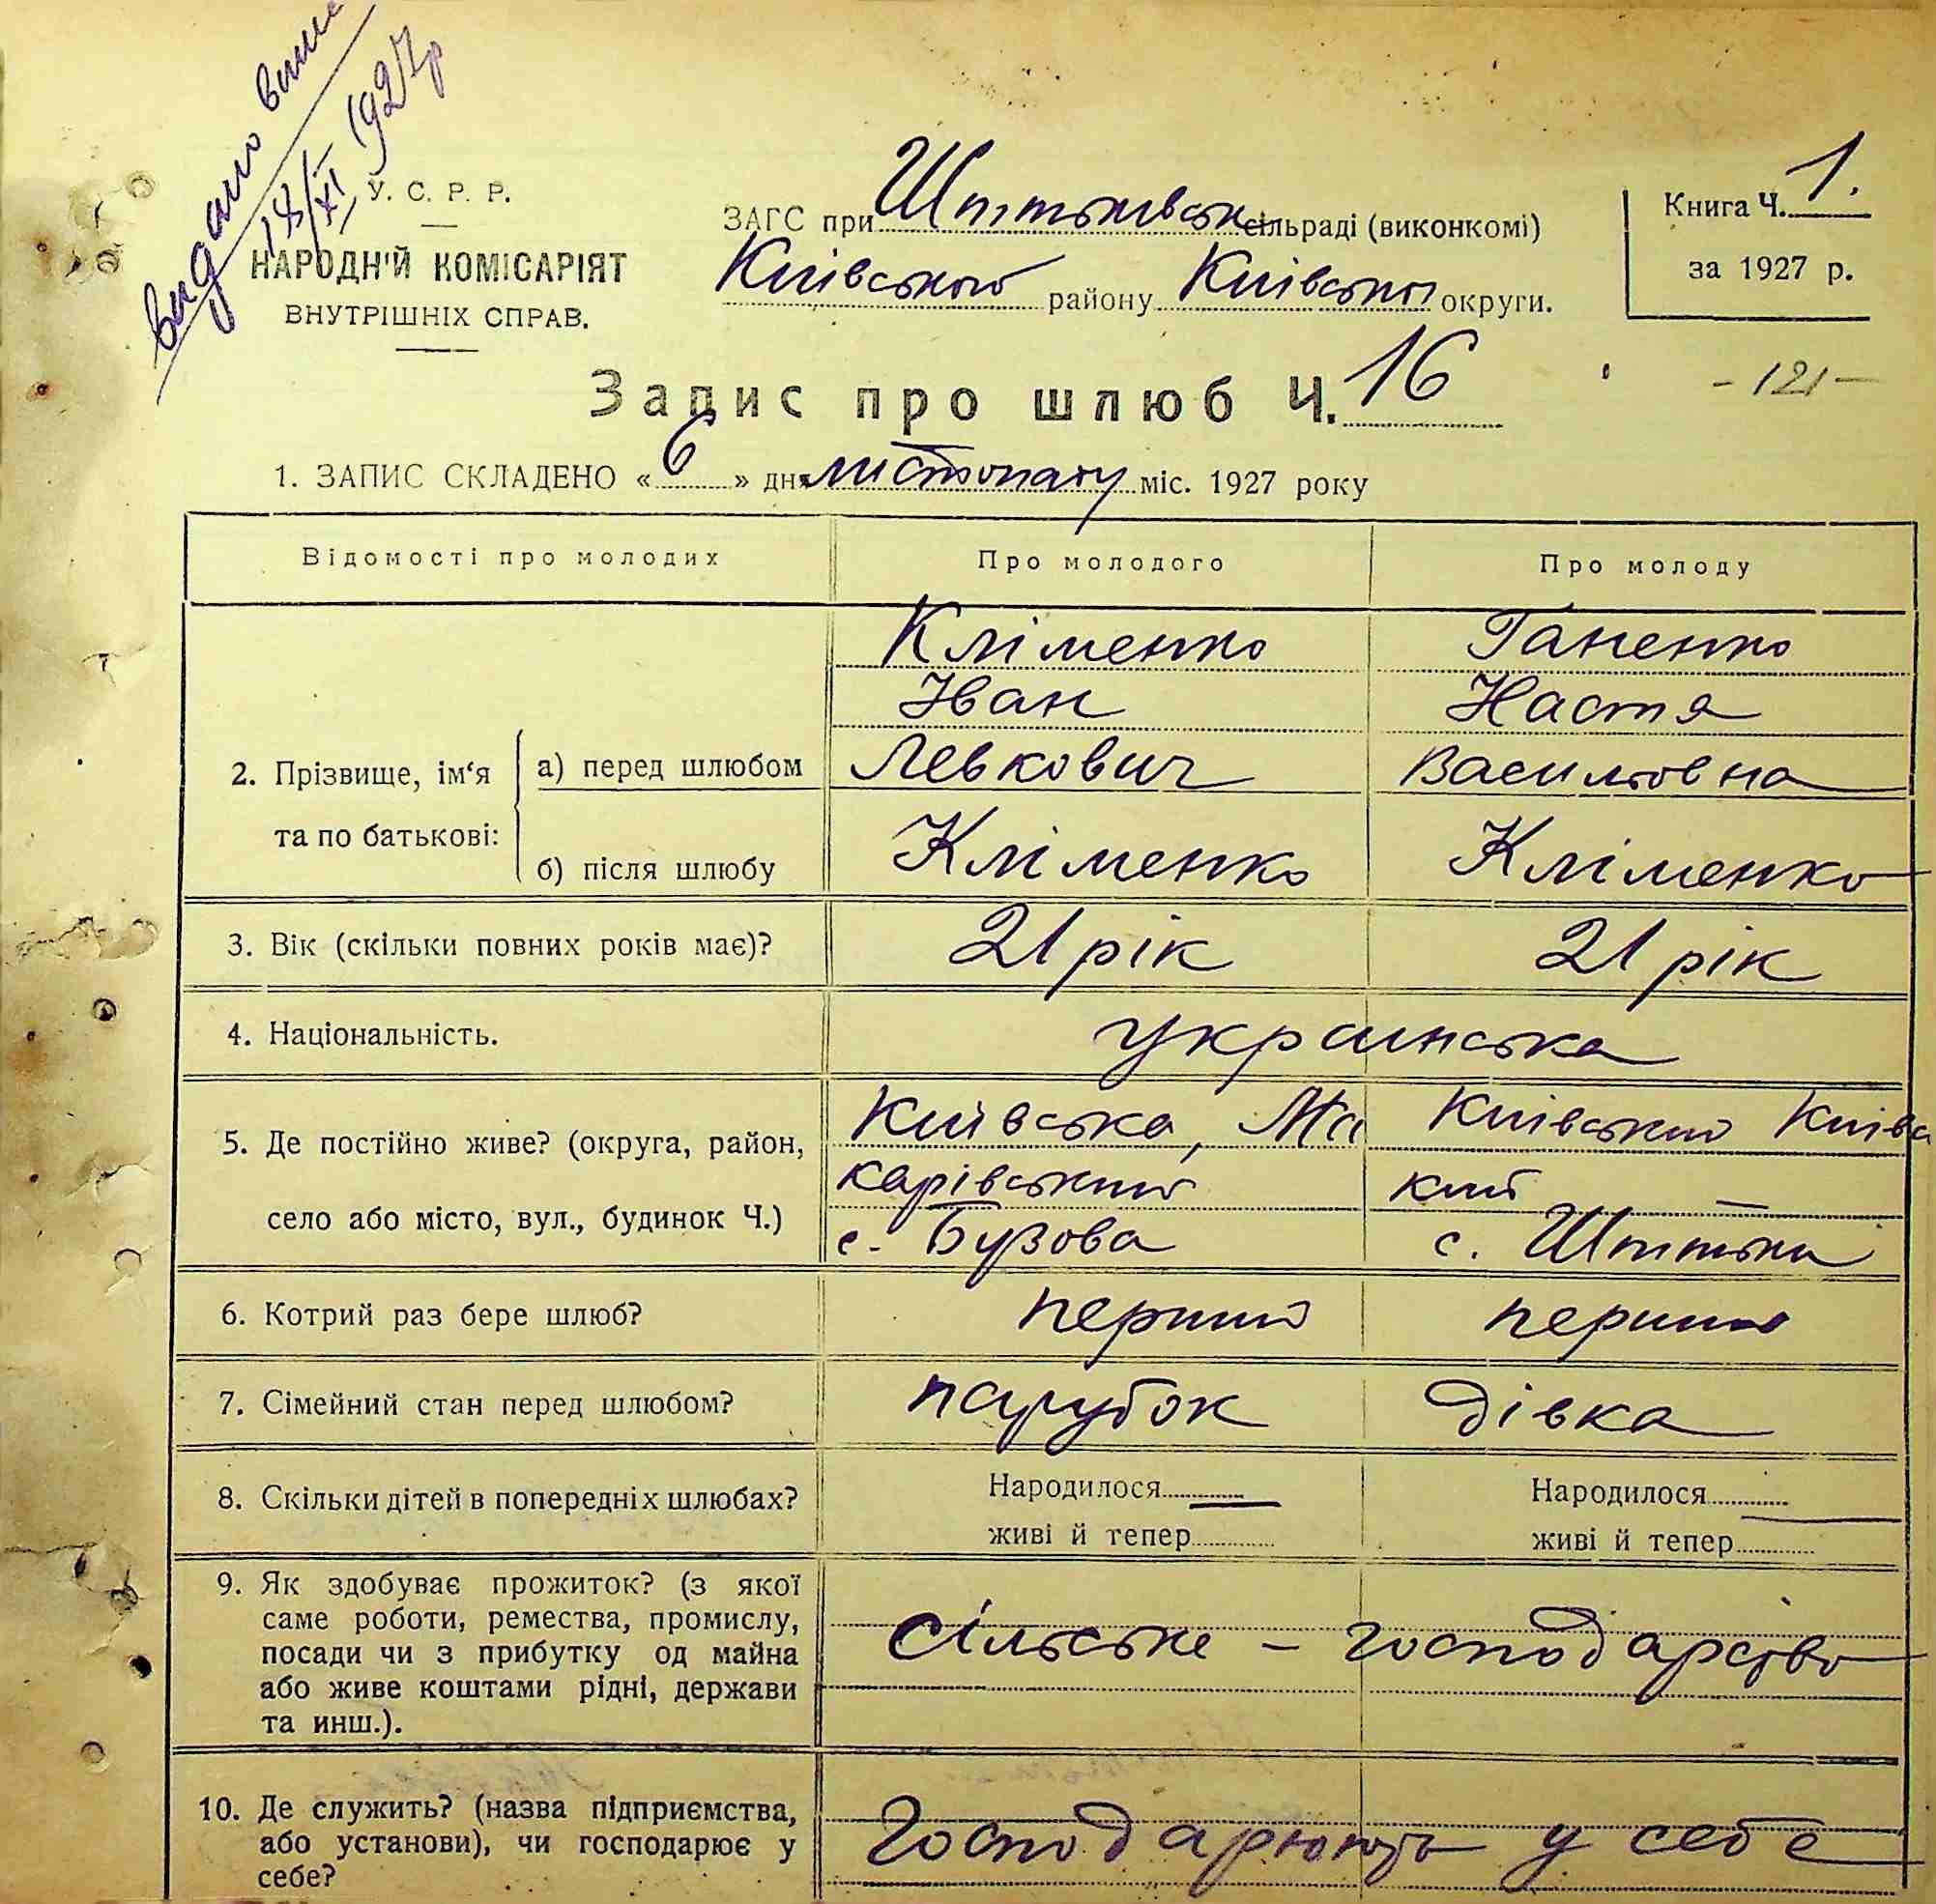 видано випис
18/XI 1927р
У. С. Р. Р.
НАРОДНІЙ КОМІСАРІЯТ
ВНУТРІШНІХ СПРАВ.
ЗАГС при Шпитьківськ сільраді (виконкомі)
Київського району Київської округи.
Книга Ч. 1.
за 1927 р.
Запис про шлюб Ч. 16
- 121 -
1. ЗАПИС СКЛАДЕНО « 6 » дня листопаду міс. 1927 року
Відомості про молодих Про молодого Про молоду
Кліменко Ганенко
Іван Настя
2. Прізвище, ім‘я а) перед шлюбом Левкович Васильовна
та по батькові:
б) після шлюбу Кліменко Кліменко
3. Вік (скільки повних років має)? 21 рік 21 рік
4. Національність. українська
5. Де постійно живе? (округа, район, Київська, Ма Київський Київс
карівський кий —
село або місто, вул., будинок Ч.) с. Бузова с. Шпитьки
6. Котрий раз бере шлюб? перший перший
7. Сімейний стан перед шлюбом? парубок дівка
8. Скільки дітей в попередніх шлюбах? Народилося — Народилося —
живі й тепер живі й тепер
9. Як здобуває прожиток? (з якої
саме роботи, ремества, промислу, сільське - господарство
посади чи з прибутку од майна
або живе коштами рідні, держави
та инш.).
10. Де служить? (назва підприємства,
або установи), чи господарює у Господарюють у себе
себе?